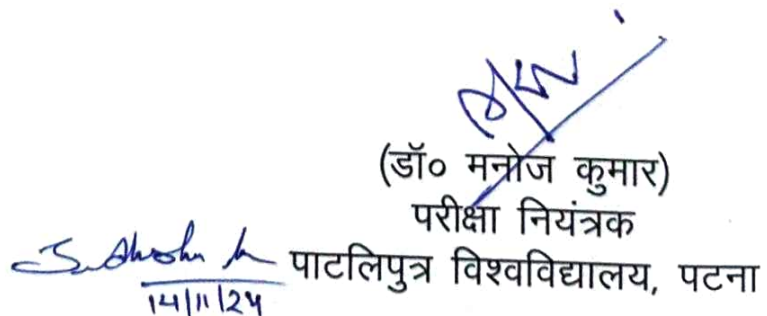 (डॉ० मनोज कुमार)
परीक्षा नियंत्रक
पाटलिपुत्र विश्वविद्यालय, पटना
14/11/24